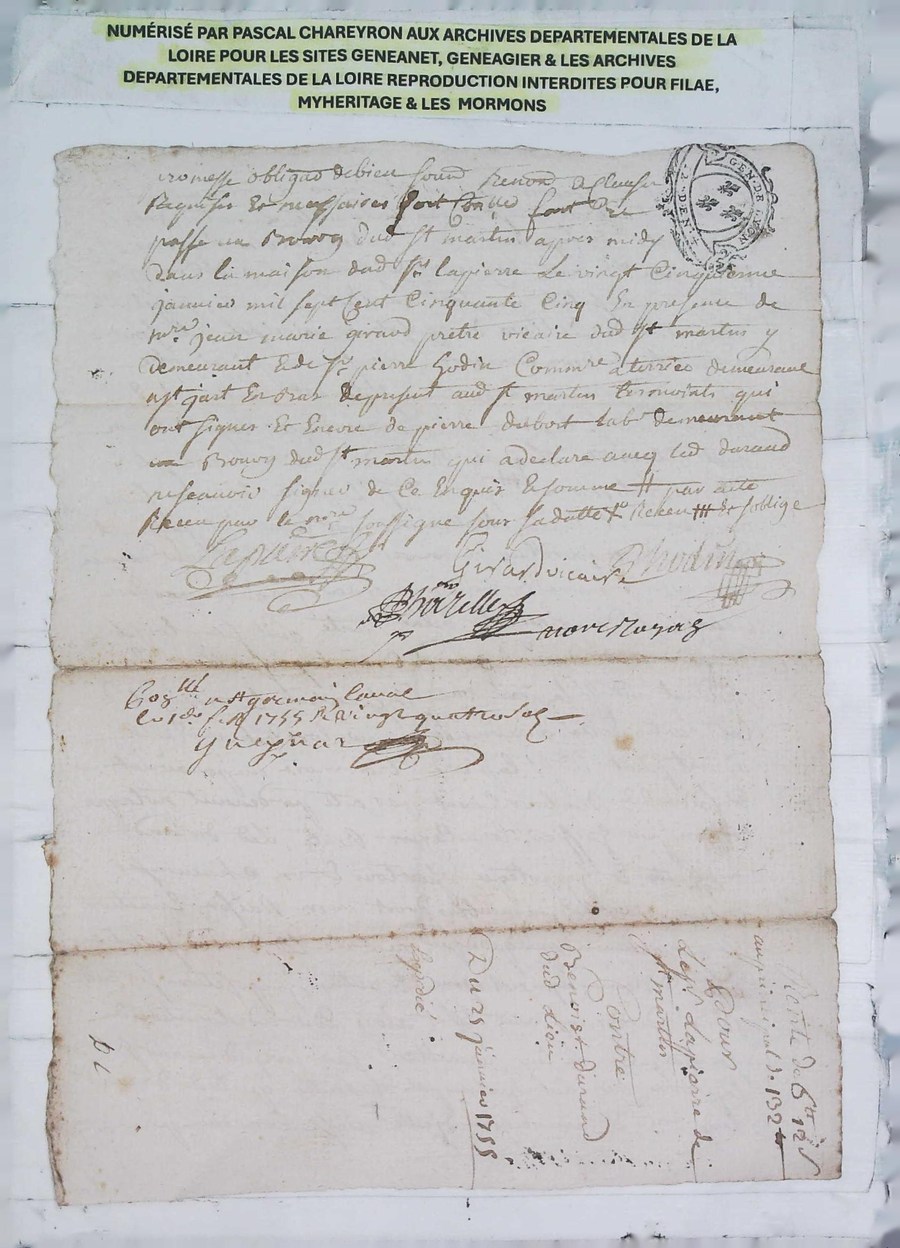 NUMÉRISÉ PAR PASCAL CHAREYRON AUX ARCHIVES DEPARTEMENTALES DE LA
LOIRE POUR LES SITES GENEANET, GENEAGIER & LES ARCHIVES
DEPARTEMENTALES DE LA LOIRE REPRODUCTION INTERDITES POUR FILAE,
MYHERITAGE & LES MORMONS
GEN·DE·LYON
promesse obligaõ de bien soumis Renonõ & Clauses
Requises Et necessaires
passé au Bourg dud st martin apres midy
dans la maison dud sr lapierre Le vingt Cinquieme
janvier mil sept Cent Cinquante Cinq En presence de
jean marie giraud prètre vicaire dud st martin y
demeurant & de sr pierre hodin Commre a terrier demeurant
de present aud st martin tesmoints qui
ont signes Et Encore de pierre dubost labr demeurant
au Bourg dud st martin qui a declaré avecq led durand
ne scavoir signer de Ce Enquis & sommé par acte
Receu par le nore soussigné sous sa datte & soblige
Lapierre
Girard vicaire
Phodin
nore Royal
st germain laval
le 1er 1755 Rs vingt quatre sols
Rente de 6tt 12s
au principal de 132tt
Pour
Le sr Lapierre de
st martin
Contre
Benoist durand
dud Lieu
Du 25 janvier 1755
Expdié